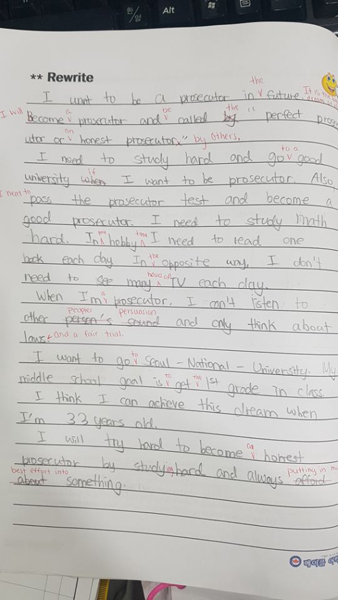 한/영
Alt
** Rewrite
the
I want to be a prosecutor in future. It is
I will Become a prosecutor and be called by the "perfect prosec
utor or an honest prosecutor." by others.
I need to study hard and go to a good
university when if I want to be prosecutor. Also
I need to pass the prosecutor test and become a
good prosecutor. I need to study math
hard. In my hobby time I need to read one
book each day. In the opposite way, I don't
need to see many hours of TV each day.
When I'm a prosecutor. I can't listen to
people persuasion
other person's sound and only think about
laws and a fair trial.
I want to go to Seoul-National-University. My
middle school goal is to get the 1st grade in class
I think I can achieve this dream when
I'm 33 years old.
I will try hard to become a honest
prosecutor by studying hard and always putting in my
best effort into
about something.